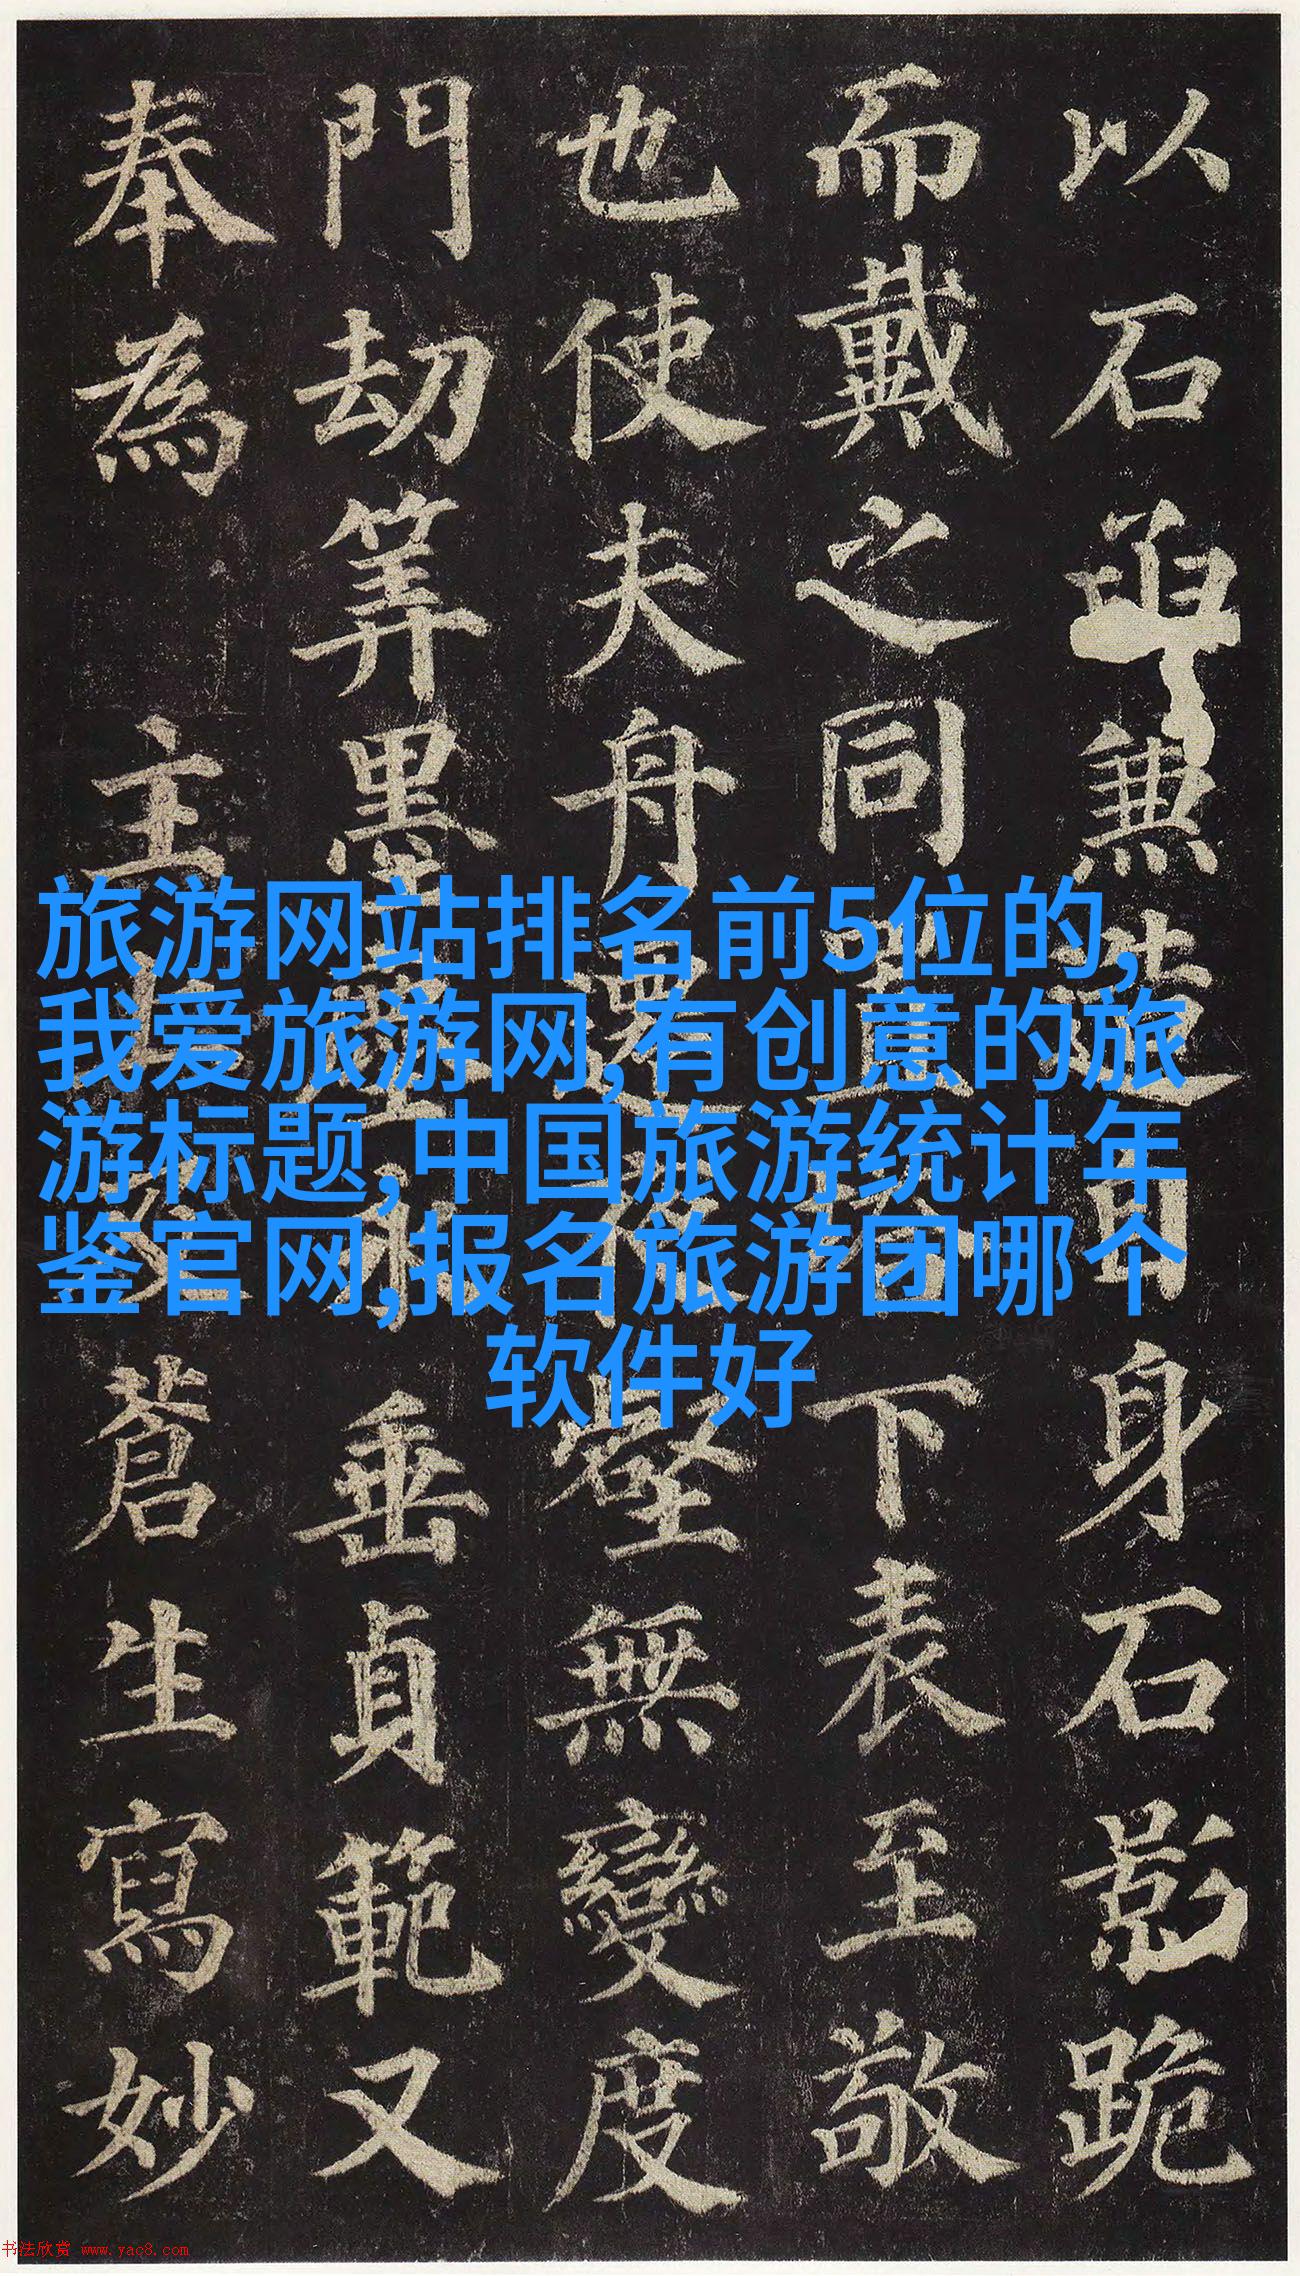 以石函兼造自身石影跪
而戴之同置塔下表至敬
也使夫舟遷夜壑無變度
門劫筭墨塵永垂貞範又
奉為主上及蒼生寫妙
旅游网站排名前5位的,
我爱旅游网,有创意的旅
游标题,中国旅游统计年
鉴官网,报名旅游团哪个
软件好
书法欣赏 www.yac8.com